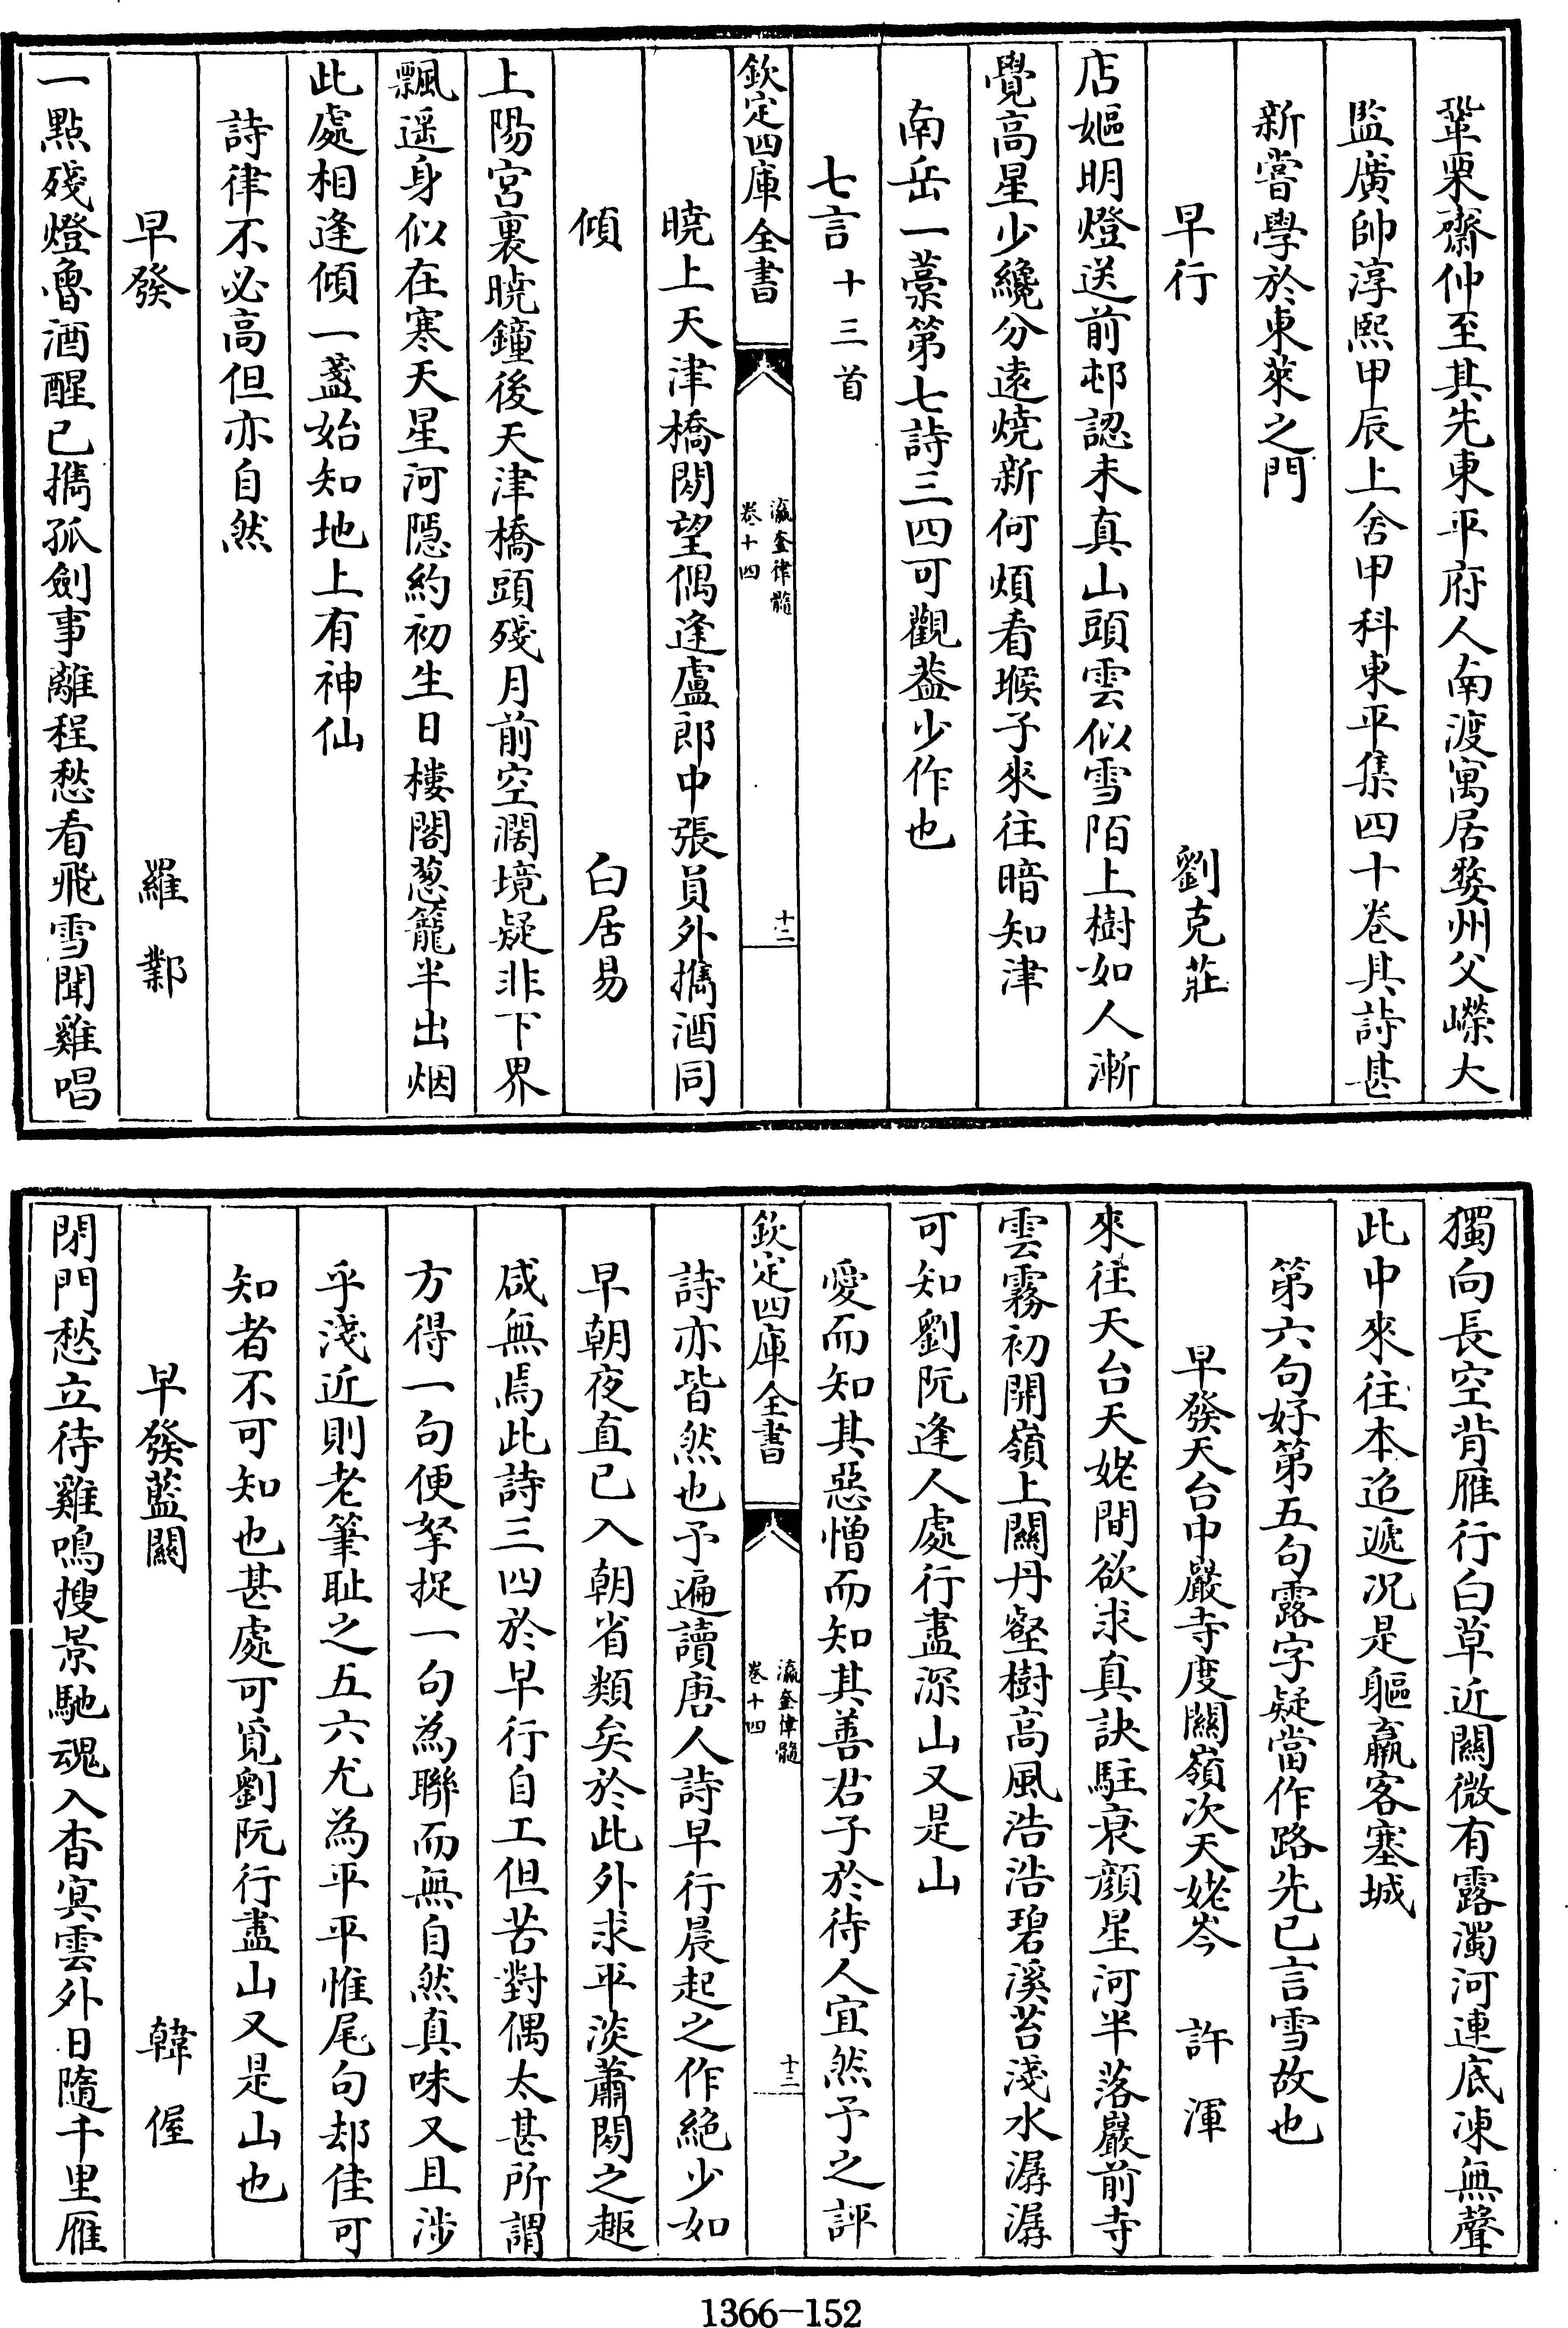 鞏栗齋仲至其先東平府人南渡寓居婺州父嶸大
監廣帥淳熙甲辰上舍甲科東平集四十卷其詩甚
新嘗學於東萊之門
早行 劉克莊
店嫗明燈送前邨認未真山頭雲似雪陌上樹如人漸
覺高星少纔分遠燒新何煩看堠子來往暗知津
南岳一藁第七詩三四可觀葢少作也
七言十三首
欽定四庫全書 瀛奎律髓 卷十四 十二
曉上天津橋閑望偶逢盧郎中張員外擕酒同
傾 白居易
上陽宮裏曉鐘後天津橋頭殘月前空濶境疑非下界
飄遥身似在寒天星河隱約初生日樓閣葱籠半出烟
此處相逢傾一盞始知地上有神仙
詩律不必高但亦自然
早發 羅鄴
一點殘燈魯酒醒已擕孤劍事離程愁看飛雪聞雞唱
獨向長空背雁行白草近關微有露濁河連底凍無聲
此中來往本迢遞况是驅羸客塞城
第六句好第五句露字疑當作路先已言雪故也
早發天台中巖寺度關嶺次天姥岑 許渾
來往天台天姥間欲求真訣駐衰顔星河半落巖前寺
雲霧初開嶺上關丹壑樹高風浩浩碧溪苔淺水潺潺
可知劉阮逢人處行盡深山又是山
愛而知其惡憎而知其善君子於待人宜然予之評
欽定四庫全書 瀛奎律髓 卷十四 十三
詩亦皆然也予遍讀唐人詩早行晨起之作絶少如
早朝夜直已入朝省類矣於此外求平淡蕭閑之趣
咸無焉此詩三四於早行自工但苦對偶太甚所謂
方得一句便拏捉一句為聯而無自然真味又且涉
乎淺近則老筆耻之五六尤為平平惟尾句却佳可
知者不可知也甚處可覓劉阮行盡山又是山也
早發藍關 韓偓
閉門愁立待雞鳴搜景馳魂入杳冥雲外日隨千里雁
1366-152